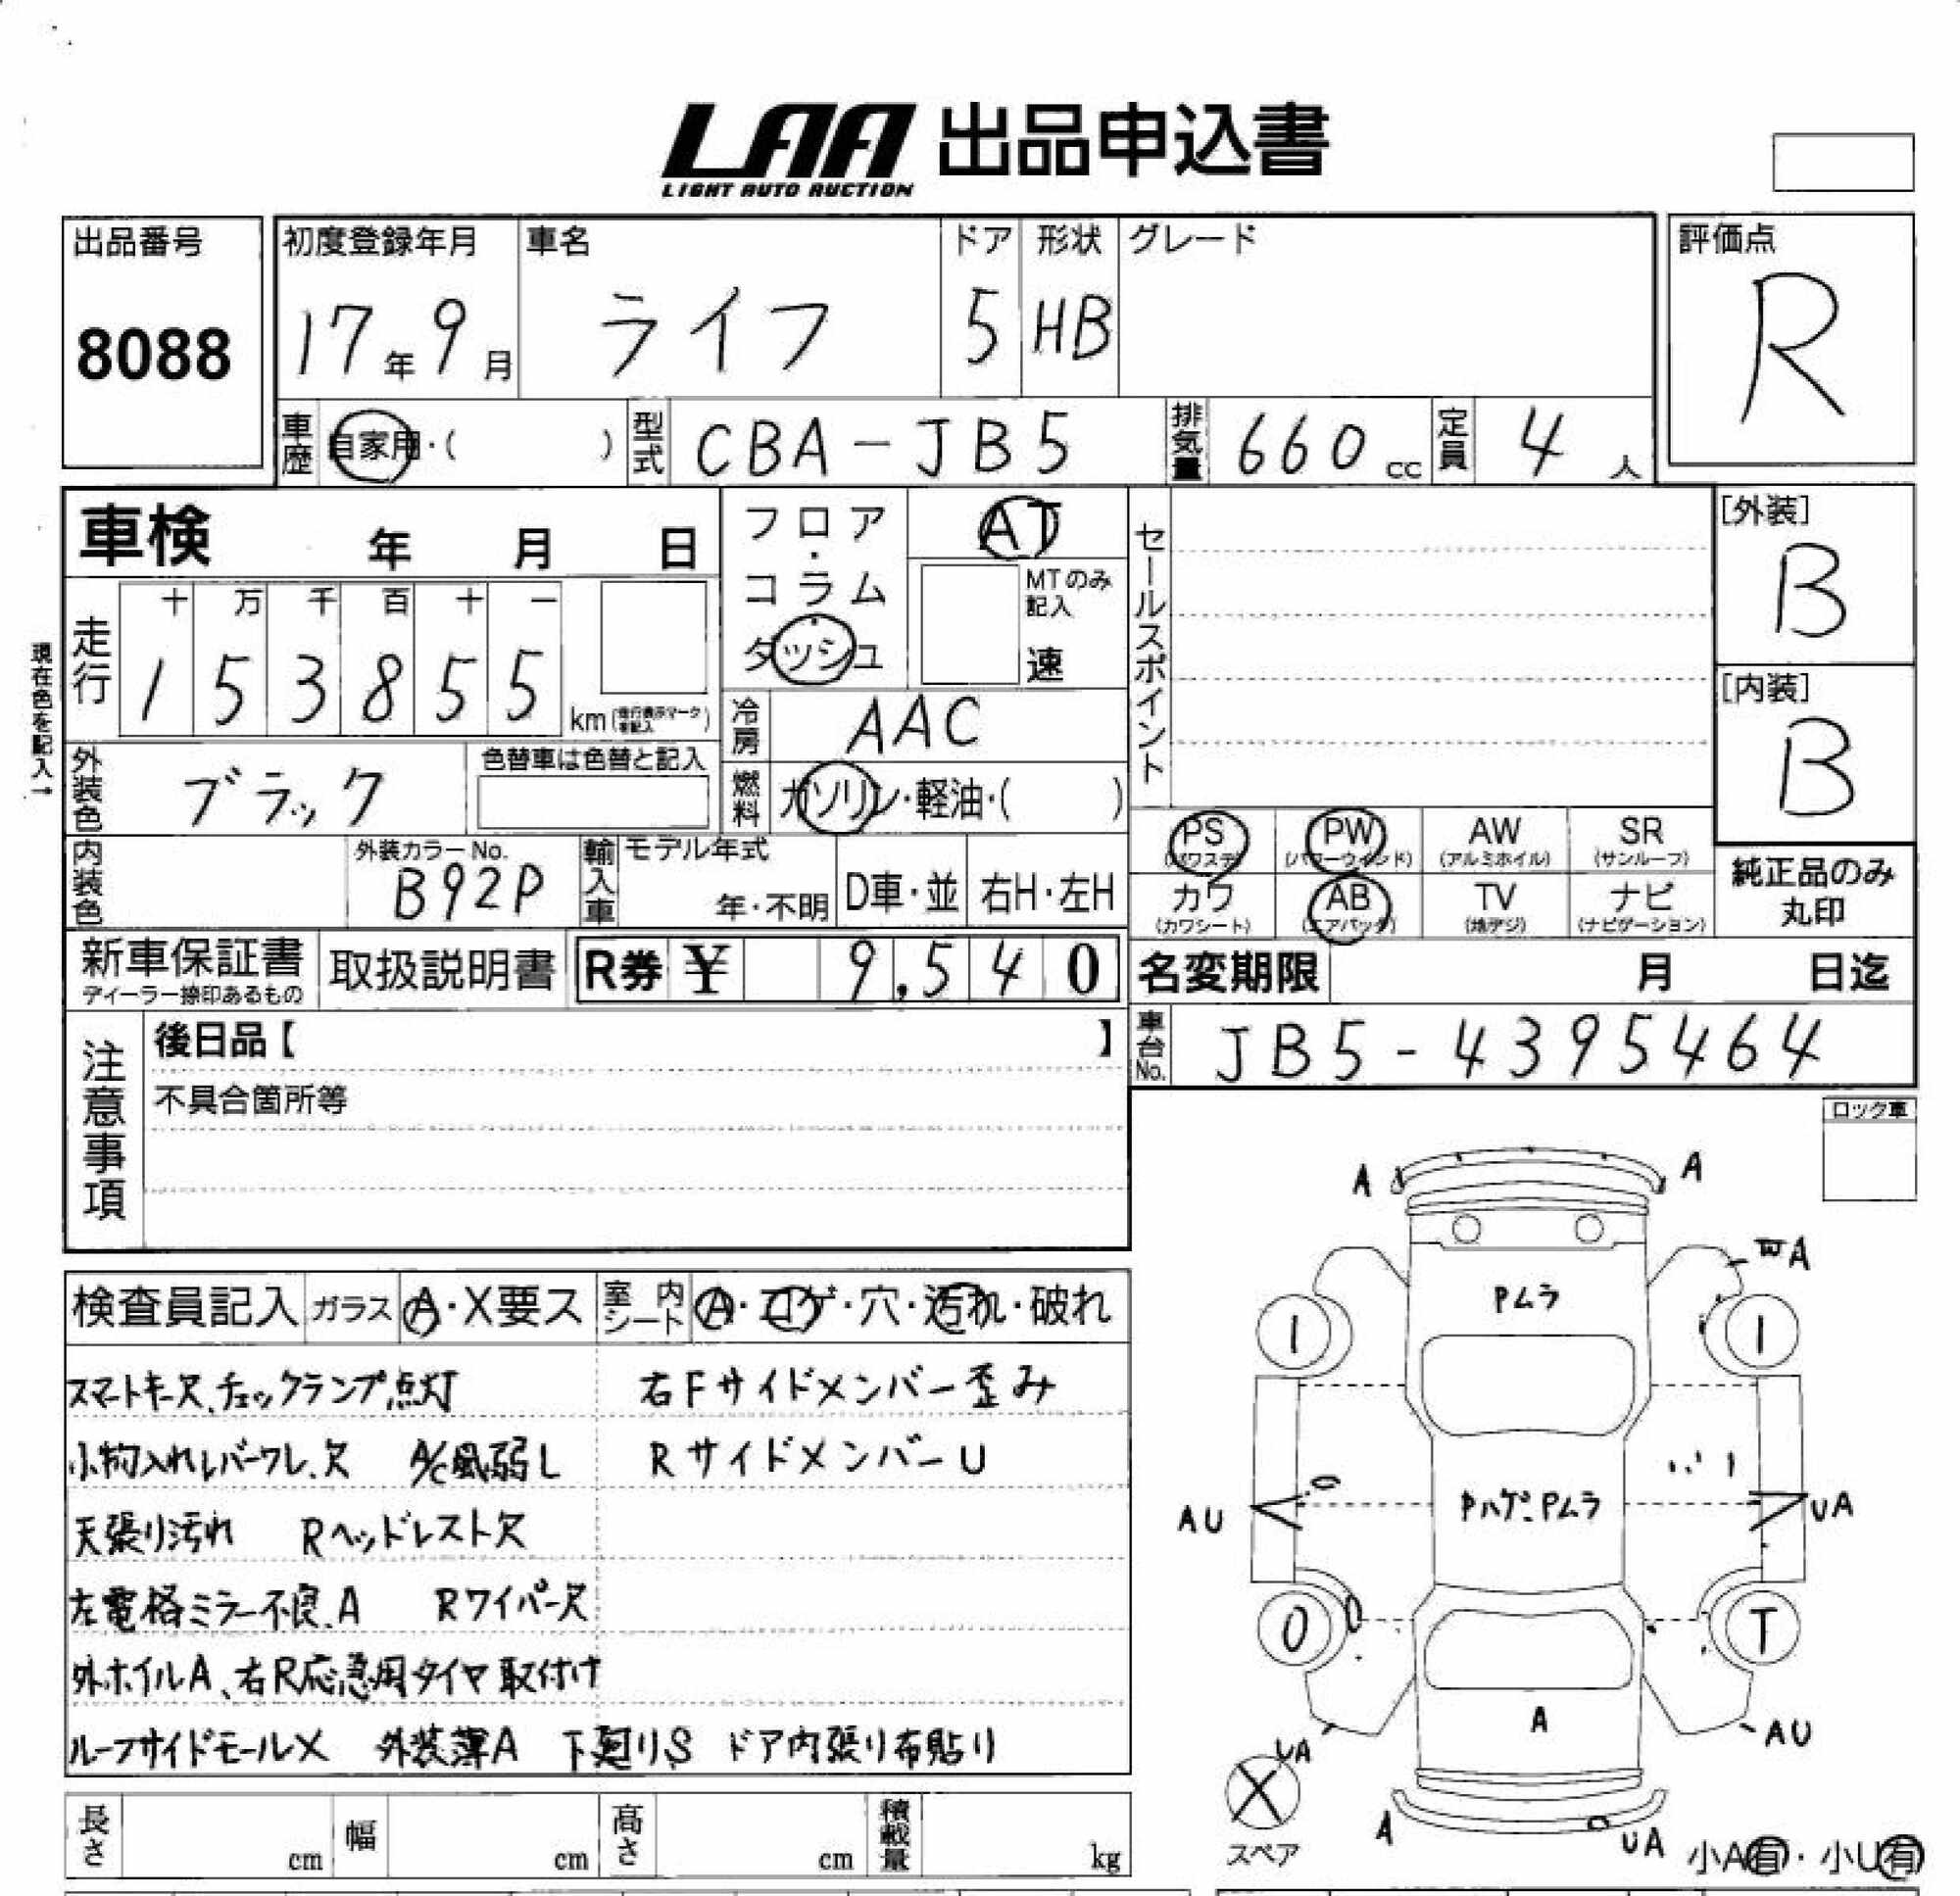 LAA 出品申込書
LIGHT AUTO AUCTION
出品番号
8088
初度登録年月
17年9月
車名
ライフ
ドア
5
形状
HB
グレード
評価点
R
車歴 自家用・( )
型式 CBA-JB5
排気量 660cc
定員 4人
車検 年 月 日
フロア・コラム・ダッシュ
AT
MTのみ記入
速
セールスポイント
[外装]
B
[内装]
B
現在色を記入→
走行
十 万 千 百 十 一
1 5 3 8 5 5 km
冷房 AAC
燃料 ガソリン・軽油・( )
外装色 ブラック
色替車は色替と記入
内装色
外装カラーNo.
B92P
輸入車
モデル年式
年・不明
D車・並
右H・左H
PS (パワステ)
PW (パワーウィンド)
AW (アルミホイル)
SR (サンルーフ)
カワ (カワシート)
AB (エアバッグ)
TV (地デジ)
ナビ (ナビゲーション)
純正品のみ
丸印
新車保証書
ディーラー捺印あるもの
取扱説明書
R券 ¥ 9,540
名変期限 月 日迄
車台No. JB5-4395464
注意事項
後日品【 】
不具合箇所等
ロック車
検査員記入
ガラス A・X要ス
室内シート A・コゲ・穴・汚れ・破れ
スマートキー欠、チェックランプ点灯
右Fサイドメンバー歪み
小物入れレバーワレ、欠 A/C風弱し
RサイドメンバーU
天張り汚れ Rヘッドレスト欠
左電格ミラー不良、A Rワイパー欠
外ホイルA、右R応急用タイヤ取付け
ルーフサイドモールX 外装薄A 下廻りS ドア内張り布貼り
A A
A
Pムラ
1 1
AU
Pハゲ、Pムラ
UA
0 T
A
UA
AU
スペア
A
UA
小A有・小U有
長さ cm
幅 cm
高さ cm
積載量 kg